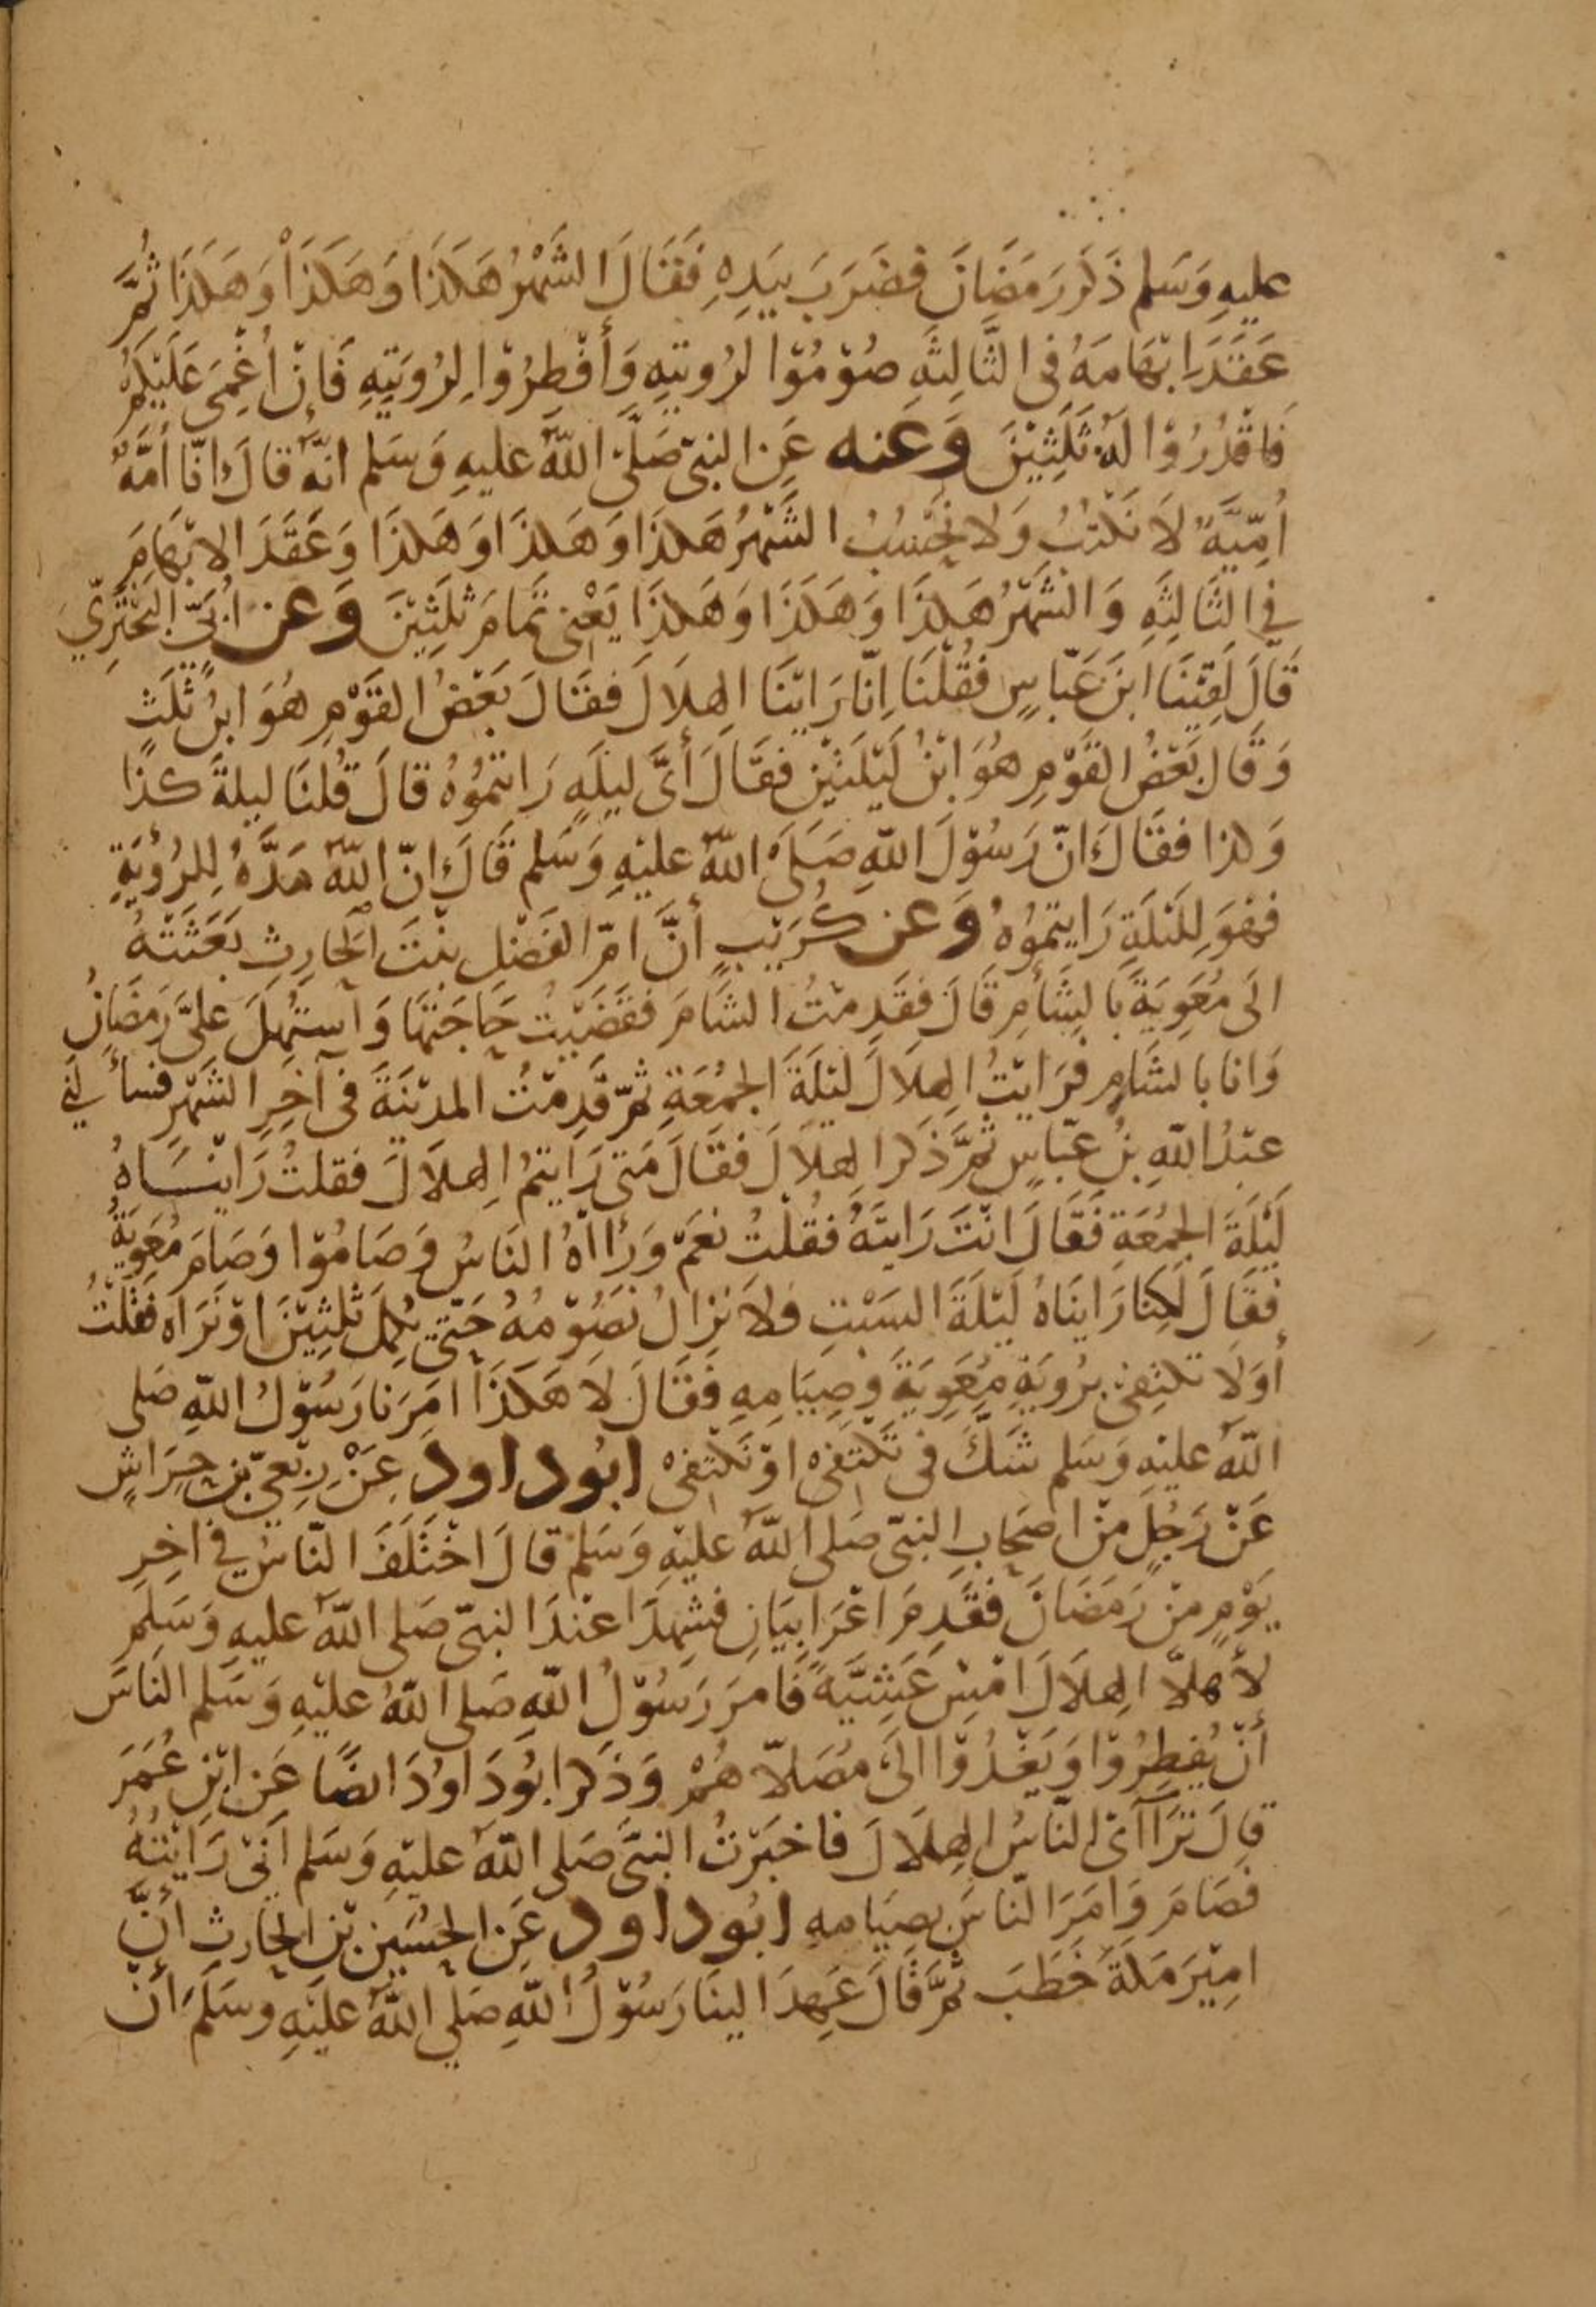 عليهِ وَسَلم ذَكَرَ رَمَضَانَ فضَرَبَ بيَدِهِ فَقَالَ الشَهْرُ هَكَذَا وَهَكَذَا وَهَكَذَا ثُمَّ
عَقَدَ ابْهَامَهُ فى الثَّالِثَهِ صُوْمُوْا لرُويتهِ وَأَفْطِرُوْا لِرُوَيَتِهِ فَاِنْ اُغْمِىَ عَلَيْكُمْ
فَاقْدُرُوْا لَهُ ثَلٰثِيْنَ وَعَنه عَنِ النبىّ صَلَّىْ اللّهُ عليهِ وَسَلم انهُ قالَ انّا اُمَّهٌ
اُمّيَّهٌ لاَ نَكْتبُ وَلا نَحْسُبُ الشَّهْرُ هَكذَا وَهَكذَا وَهَكذَا وَعَقَدَ الابْهَامَ
فى الثَالِثَهِ وَالشَّهْرُ هَكذَا وَهَكَذَا وَهَكذَا يَعْنى تَمامَ ثلٰثِيْنَ وَعن ابى البَخْتَرِيّ
قَالَ لَقِيْنَا ابنَ عَبّاسٍ فقُلْنَا اِنّا رَايْنَا الهِلاَلَ فقَالَ بَعْضُ القَوْمِ هُوَ ابنُ ثلٰثٍ
وَقَالَ بَعْضُ القَوْمِ هُوَ ابْنُ لَيْلَتَيْنِ فقَالَ أَىَّ ليلَهٍ رَايتمُوْهُ قالَ قُلنَا ليلةَ كذَا
وَكذا فقَالَ انّ رَسُوْلَ اللّهِ صَلَىّ اللّهُ عليْهِ وَسَلم قَالَ انّ اللّهَ مَدَّهُ لِلرُؤيَةِ
فهْوَ لِلَيْلَةِ رَايتمُوْهُ وَعن كُرَيْبٍ أَنَّ امّ الفَضْلِ بنْتَ الحَارِثِ بَعَثَتْهُ
الَى مُعَوِيَةَ بَالشَأمِ قَالَ فقَدِمْتُ الشَامَ فقَضَيْتُ حَاجَتَهَا وَاستُهِلَ علىَّ رَمَضَانُ
وَانَا بالشَامِ فرَايْتُ الهِلاَلَ ليْلَةَ الجُمُعَةِ ثمَّ قَدِمْتُ المَديْنَةَ فى آخِرِ الشَهْرِ فسألنى
عبْدُ اللّهِ بنُ عَبّاسٍ ثمَّ ذَكَرَ الهِلاَلَ فقَالَ مَتى رَايتمُ الهِلاَلَ فقلتُ رَاينَاهُ
لَيْلَةَ الجُمُعَةِ فَقَالَ انْتَ رَايتَهُ فقُلْتُ نعَمْ وَرَااهُ النَاسُ وَصَامُوْا وَصَامَ مُعَوِيَةُ
فَقَالَ لَكِنّا رَايناهُ لَيْلَةَ السَبْتِ فلاَ نزالُ نصُوْمُهُ حَتّى نُكْمِلَ ثلٰثِيْنَ اوْ نَرَاه فقلتُ
أَوَلاَ تكتفِى برُويَةِ مُعَوِيَةَ وَصِيَامِهِ فَقَالَ لاَ هَكَذَا امَرَنَا رَسُوْلُ اللّهِ صَلى
اللّهُ عليْهِ وَسَلم شَكَّ فى تَكْتفى اوْ نَكْتفى ابُوداود عِنْ رِبْعِىّ بنِ حِرَاشٍ
عَنْ رَجُلٍ منْ اصحَابِ النبىّ صَلى اللّهُ عليْهِ وَسَلمْ قَالَ اخْتَلَفَ النّاسُ فى اخِرِ
يَوْمٍ منْ رَمَضَانَ فقَدِمَ اعْرَابيَانِ فشهِدَا عنْدَ النبىّ صَلى اللّهُ عليهِ وَسَلم
لأَهلاَّ الهِلاَلَ امْسِ عَشِيَّهً فَامرَ رَسُوْلُ اللّهِ صَلى اللّهُ عليْهِ وَسَلم النَاسَ
أَنْ يُفطِرُوْا وَيَغْدُوْا الىَ مُصَلاّهُمْ وَذكرَ ابُودَاوُدَ ايضًا عَن ابْنِ عُمَرَ
قالَ تَرَآأَى النّاسُ الهِلاَلَ فَاخبَرْتُ النبىَّ صَلى اللّهُ عليْهِ وَسَلم اَنّى رَايْتُهُ
فَصَامَ وَامَرَ النّاسَ بصِيَامهِ ابُوداود عَنِ الحُسَيْنِ بْنِ الحَارِث أَنَّ
امِيْرَ مَكَةَ خَطَبَ ثمَّ قَالَ عَهِدَ الينَا رَسُوْلُ اللّهِ صَلي اللّهُ عَليْهِ وسَلَمَ أَنْ